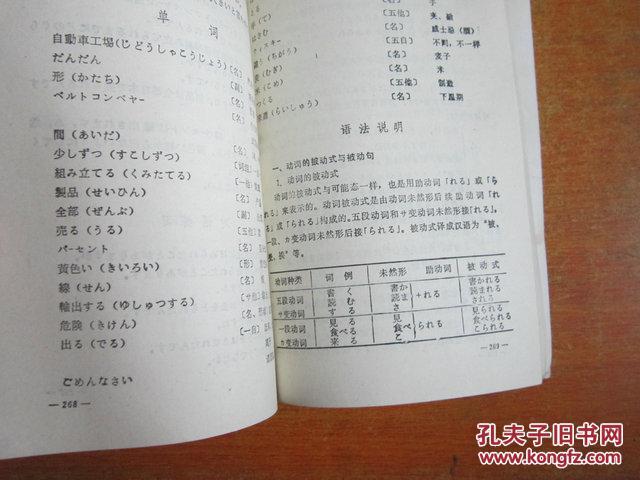 单 词
自動車工場(じどうしゃこうじょう)〔名〕
だんだん 〔副〕
形(かたち) 〔名〕
ベルトコンベヤー 〔名〕
間(あいだ)
少しずつ(すこしずつ) 〔词组〕
組み立てる(くみたてる) 〔一他〕
製品(せいひん) 〔名〕
全部(ぜんぶ) 〔副〕
売る(うる) 〔五他〕
パーセント 〔名〕
黄色い(きいろい) 〔形〕
線(せん) 〔名〕
輸出する(ゆしゅつする) 〔サ他〕
危険(きけん)
出る(でる) 〔一自〕
ごめんなさい
— 268 —
〔五他〕 夹、
ウィスキー 〔名〕 威士忌(酒)
(ちがう) 〔五自〕 不同,不一样
(むぎ) 〔名〕 麦子
米(こめ) 〔名〕 米
つくる 〔五他〕 制造
来週(らいしゅう) 〔名〕 下星期
语 法 说 明
一、动词的被动式与被动句
1.动词的被动式
动词的被动式与可能态一样,也是用助动词「れる」或「ら
れる」来表示的。动词被动式是由动词未然形后续助动词「れ
る」或「られる」构成的。五段动词和サ变动词未然形接「れる」。
一段、カ变动词未然形后接「られる」。被动式译成汉语为"被,
挨"等。
动词种类 词 例 未然形 助动词 被 动 式
五段动词 書 く 書か +れる 書かれる
読 む 読ま 読まれる
サ变动词 す る さ される
一段动词 見 る 見 +られる 見られる
食べる 食べ 食べられる
カ变动词 来 る こ こられる
— 269 —
孔夫子旧书网
www.kongfz.com